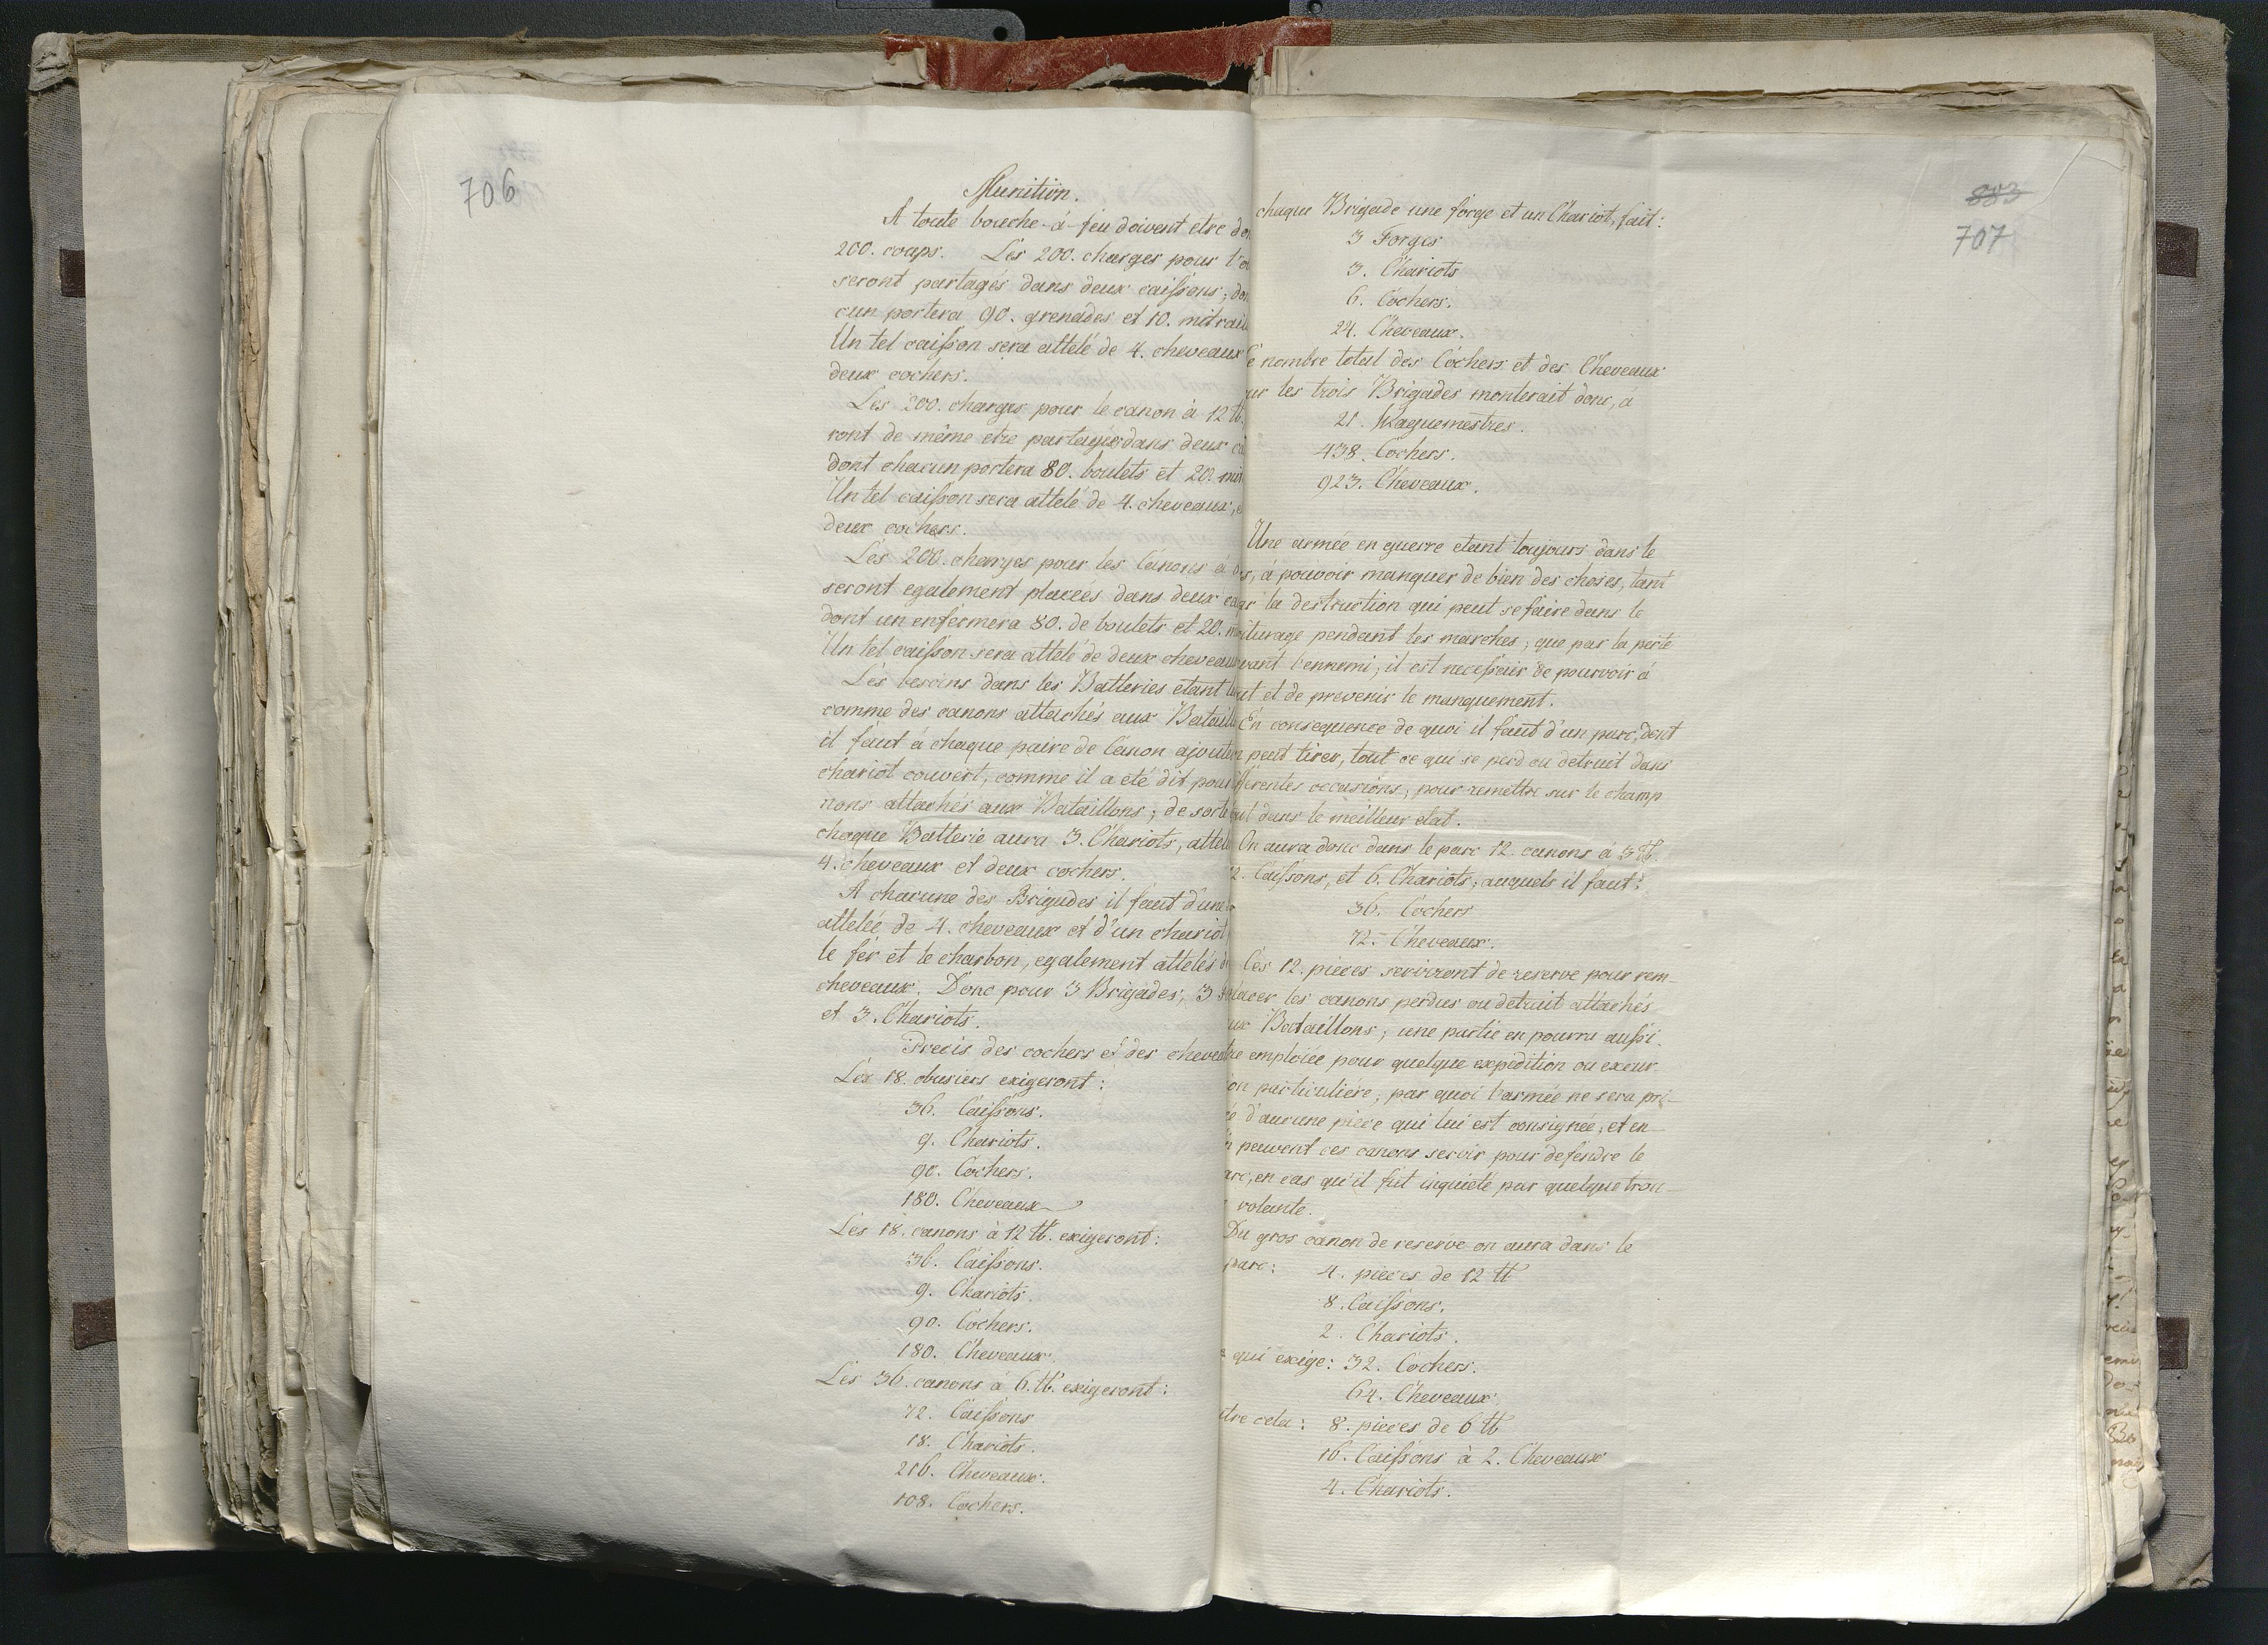 706
Munition.
A toute bouche-à-feu doivent etre
200. coups. Les 200. charges pour
seront partagés dans deux caissons;
cun portera 90. grenades et 10.
Un tel caisson sera attelé de 4. cheveaux
deux cochers.
Les 200. charges pour le canon à 12 ℔.
ront de même etre partagées dans deux
dont chacun portera 80. boulets et 20.
Un tel caisson sera attelé de 4. cheveaux,
deux cochers.
Les 200. charges pour les Canons à
seront egalement placées dans deux
dont un enfermera 80. de boulets et 20.
Un tel caisson sera attelé de deux cheveaux
Les besoins dans les Batteries etant
comme des canons attachés aux
il faut à chaque paire de Canon
chariot couvert, comme il a eté dit pour
nons attachés aux Bataillons; de sorte
chaque Batterie aura 3. Chariots,
4. cheveaux et deux cochers.
A chacune des Brigades il faut d'une
attelée de 4. cheveaux et d'un chariot
le fer et le charbon, egalement attelés
cheveaux. Donc pour 3 Brigades, 3
et 3. Chariots.
Precis des cochers et des
Les 18. obusiers exigeront:
36. Caissons.
9. Chariots.
90. Cochers.
180. Cheveaux
Les 18. canons à 12 ℔. exigeront:
36. Caissons.
9. Chariots.
90. Cochers.
180. Cheveaux.
Les 36. canons à 6. ℔. exigeront:
72. Caissons
18. Chariots.
216. Cheveaux.
108. Cochers.
883
707
chaque Brigade une forge et un Chariot, fait:
3 Forges
3. Chariots
6. Cochers.
24. Cheveaux.
nombre total des Cochers et des Cheveaux
les trois Brigades monterait donc, a
21. Waguemestres.
438. Cochers.
923. Cheveaux.
Une armée en guerre etant toujours dans le
à pouvoir manquer de bien des choses, tant
la destruction qui peut se faire dans le
pendant les marches, que par la perte
l'ennemi, il est necessair de pourvoir à
et de prevenir le manquement.
En consequence de quoi il faut d'un parc, dont
peut tirer, tout ce qui se perd ou detruit dans
occasions, pour remettre sur le champ
dans le meilleur etat.
On aura donc dans le parc 12. canons à 3 ℔.
Caissons, et 6. Chariots, auquels il faut:
36. Cochers
72. Cheveaux.
Ces 12. pieces serviront de reserve pour rem-
les canons perdus ou detruit attachés
Bataillons; une partie en pourra aussi
emploiée pour quelque expedition ou excur
particuliére, par quoi l'armée ne sera pri-
d'aucune piece qui lui est consignée, et en
peuvent ces canons servir pour defendre le
en cas qu'il fut inquieté par quelque trou-
volante.
Du gros canon de reserve on aura dans le
parc: 4. pieces de 12 ℔
8. Caissons.
2. Chariots.
qui exige: 32. Cochers.
64. Cheveaux.
cela: 8. pieces de 6 ℔
16. Caissons à 2. Cheveaux
4. Chariots.